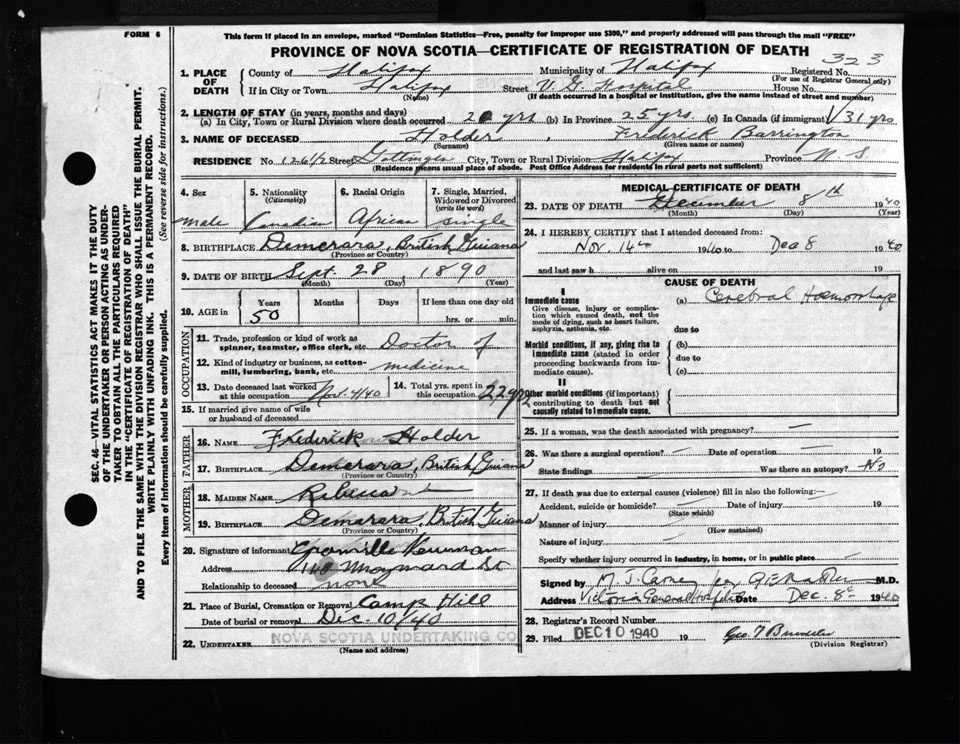 FORM 6
This form if placed in an envelope, marked "Dominion Statistics—Free, penalty for improper use $300," and properly addressed will pass through the mail "FREE"
PROVINCE OF NOVA SCOTIA—CERTIFICATE OF REGISTRATION OF DEATH
323
1. PLACE OF DEATH County of Halifax Municipality of Halifax Registered No.
(For use of Registrar General only)
If in City or Town Halifax Street V. G. Hospital House No.
(Name) (If death occurred in a hospital or institution, give the name instead of street and number)
2. LENGTH OF STAY (in years, months and days)
(a) In City, Town or Rural Division where death occurred yrs (b) In Province 25 yrs. (c) In Canada (if immigrant) 31 yrs
3. NAME OF DECEASED Holder, Frederick Barrington
(Surname) (Given name or names)
RESIDENCE No. 126 1/2 Street Gottingen City, Town or Rural Division Halifax Province N S
(Residence means usual place of abode. Post Office address for residents in rural parts not sufficient)
SEC. 46—VITAL STATISTICS ACT MAKES IT THE DUTY
OF THE UNDERTAKER OR PERSON ACTING AS UNDER-
TAKER TO OBTAIN ALL THE PARTICULARS REQUIRED
IN THE "CERTIFICATE OF REGISTRATION OF DEATH"
AND TO FILE THE SAME WITH THE DIVISION REGISTRAR WHO SHALL ISSUE THE BURIAL PERMIT.
WRITE PLAINLY WITH UNFADING INK. THIS IS A PERMANENT RECORD.
Every item of Information should be carefully supplied. (See reverse side for instructions.)
4. Sex male
5. Nationality (Citizenship) Canadian
6. Racial Origin African
7. Single, Married, Widowed or Divorced (write the word) single
8. BIRTHPLACE Demerara, British Guiana
(Province or Country)
9. DATE OF BIRTH Sept 28, 1890
(Month) (Day) (Year)
10. AGE in Years 50 Months Days If less than one day old
hrs. or min.
OCCUPATION
11. Trade, profession or kind of work as spinner, teamster, office clerk, etc. Doctor of
12. Kind of industry or business, as cotton-mill, lumbering, bank, etc. medicine
13. Date deceased last worked at this occupation Nov. 4/40
14. Total yrs. spent in this occupation 22 yrs
15. If married give name of wife or husband of deceased
FATHER
16. NAME Frederick Holder
17. BIRTHPLACE Demerara, British Guiana
(Province or Country)
MOTHER
18. MAIDEN NAME Rebecca
19. BIRTHPLACE Demarara, British Guiana
(Province or Country)
20. Signature of informant Granville Newman
Address Maynard St
Relationship to deceased none
21. Place of Burial, Cremation or Removal Camp Hill
Date of burial or removal Dec. 10/40
22. UNDERTAKER NOVA SCOTIA UNDERTAKING CO
(Name and address)
MEDICAL CERTIFICATE OF DEATH
23. DATE OF DEATH December 8th 1940
(Month) (Day) (Year)
24. I HEREBY CERTIFY that I attended deceased from:
Nov. 14th 1940 to Dec 8 1940
and last saw h alive on 19
CAUSE OF DEATH
I
Immediate cause (a) Cerebral Hemorrhage
Give disease, injury or complication which caused death, not the mode of dying, such as heart failure, asphyxia, asthenia, etc.
due to
Morbid conditions, if any, giving rise to immediate cause (stated in order proceeding backwards from immediate cause). (b)
due to
(c)
II
Other morbid conditions (if important) contributing to death but not causally related to immediate cause.
25. If a woman, was the death associated with pregnancy? —
26. Was there a surgical operation? — Date of operation — 19
State findings Was there an autopsy? No
27. If death was due to external causes (violence) fill in also the following:—
Accident, suicide or homicide? Date of injury 19
(State which)
Manner of injury
(How sustained)
Nature of injury
Specify whether injury occurred in industry, in home, or in public place
Signed by M. J. Carney M.D.
Address Victoria General Hospital Date Dec. 8th 1940
28. Registrar's Record Number
29. Filed DEC 10 1940 19
(Division Registrar)